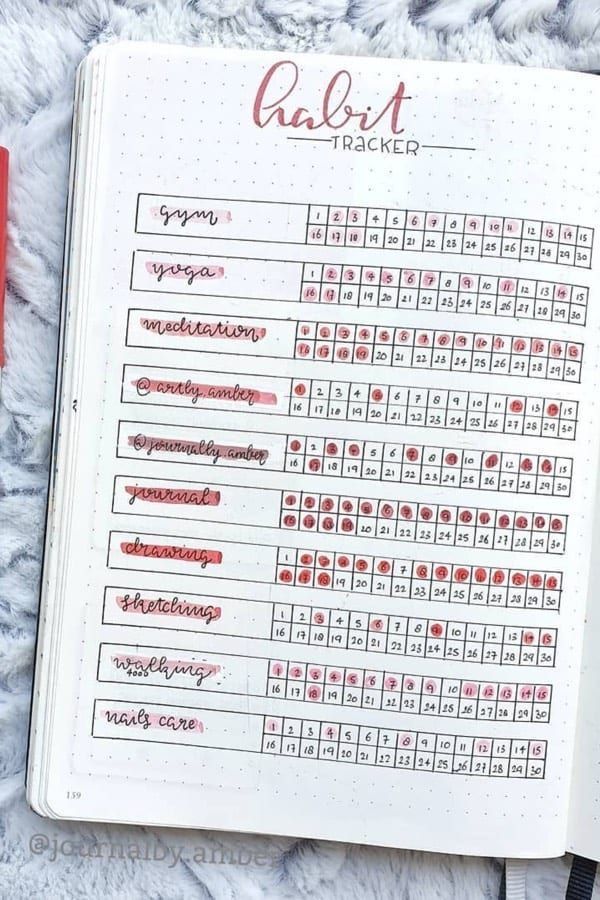 habit
TRACKER
gym
1 2 3 4 5 6 7 8 9 10 11 12 13 14 15
16 17 18 19 20 21 22 23 24 25 26 27 28 29 30
yoga
1 2 3 4 5 6 7 8 9 10 11 12 13 14 15
16 17 18 19 20 21 22 23 24 25 26 27 28 29 30
meditation
1 2 3 4 5 6 7 8 9 10 11 12 13 14 15
16 17 18 19 20 21 22 23 24 25 26 27 28 29 30
@artly.amber
1 2 3 4 5 6 7 8 9 10 11 12 13 14 15
16 17 18 19 20 21 22 23 24 25 26 27 28 29 30
@journalby.amber
1 2 3 4 5 6 7 8 9 10 11 12 13 14 15
16 17 18 19 20 21 22 23 24 25 26 27 28 29 30
journal
1 2 3 4 5 6 7 8 9 10 11 12 13 14 15
16 17 18 19 20 21 22 23 24 25 26 27 28 29 30
drawing
1 2 3 4 5 6 7 8 9 10 11 12 13 14 15
16 17 18 19 20 21 22 23 24 25 26 27 28 29 30
sketching
1 2 3 4 5 6 7 8 9 10 11 12 13 14 15
16 17 18 19 20 21 22 23 24 25 26 27 28 29 30
walking
4000
1 2 3 4 5 6 7 8 9 10 11 12 13 14 15
16 17 18 19 20 21 22 23 24 25 26 27 28 29 30
nails care
1 2 3 4 5 6 7 8 9 10 11 12 13 14 15
16 17 18 19 20 21 22 23 24 25 26 27 28 29 30
159
@journalby.amber